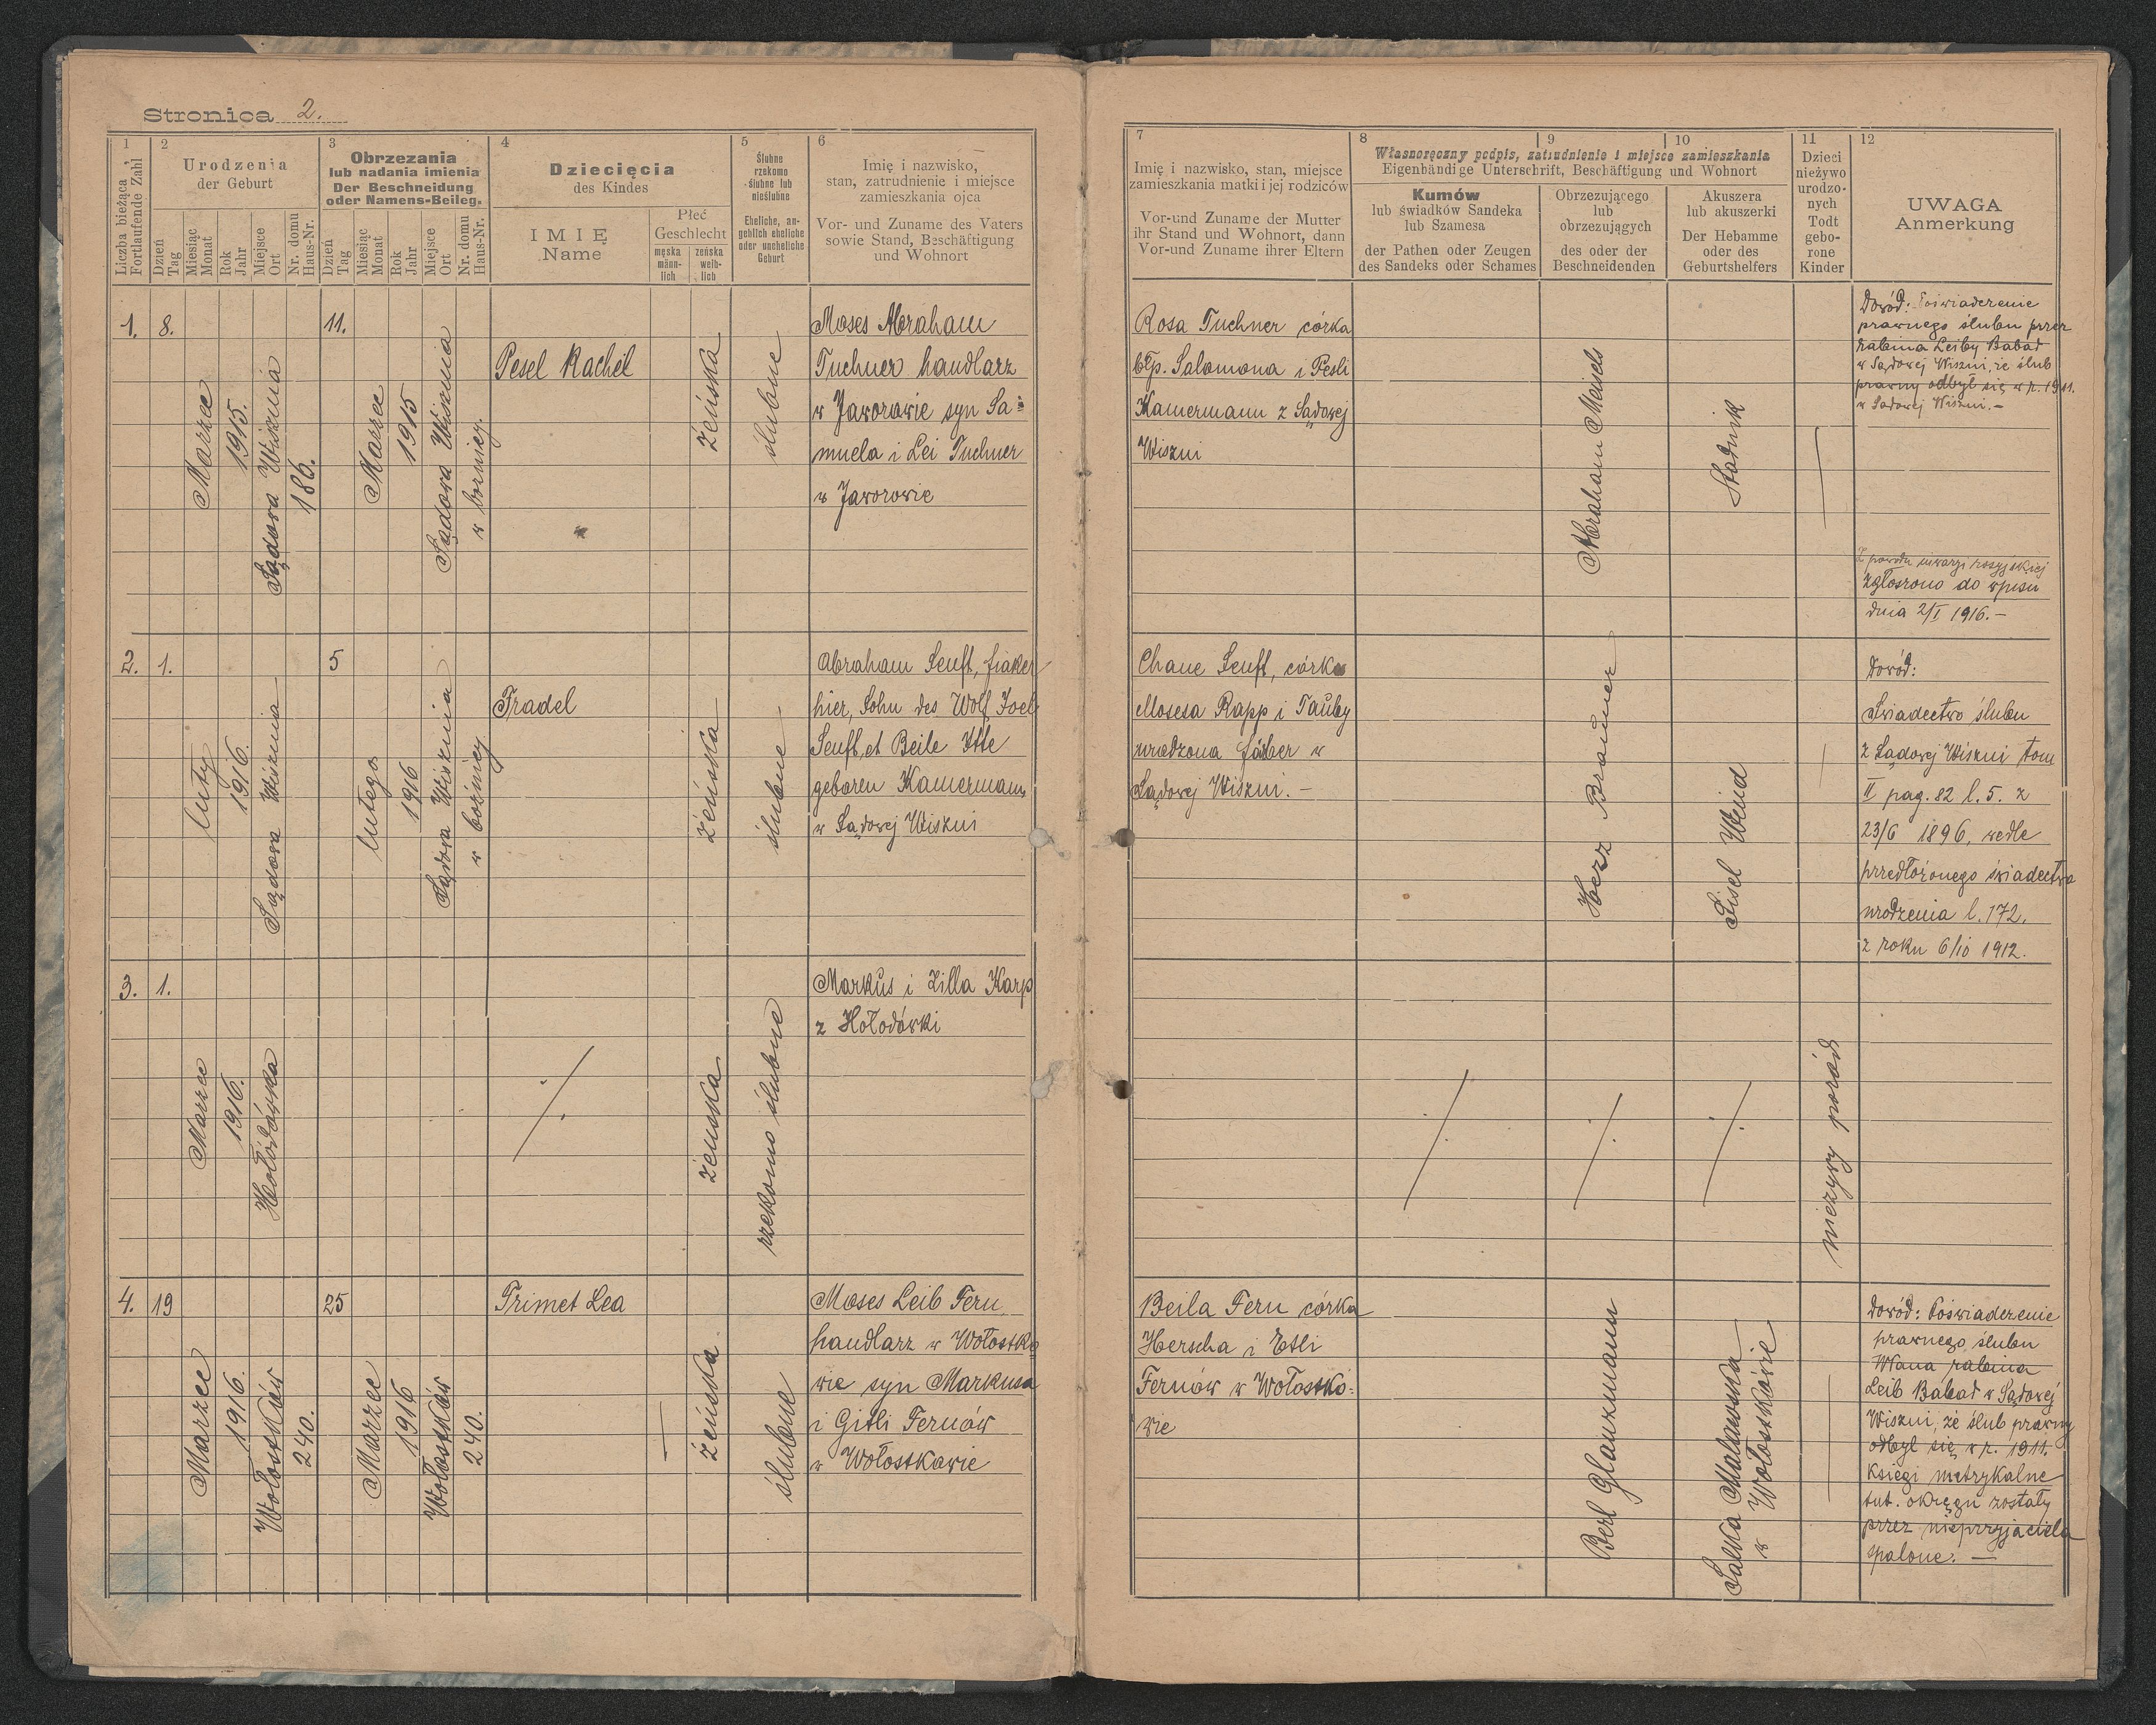 Stronica 2.
1
Liczba bieżąca
Fortlaufende Zahl
2
Urodzenia
der Geburt
Dzień
Tag
Miesiąc
Monat
Rok
Jahr
Miejsce
Ort
Nr. domu
Haus-Nr.
3
Obrzezania
lub nadania imienia
Der Beschneidung
oder Namens-Beileg.
Dzień
Tag
Miesiąc
Monat
Rok
Jahr
Miejsce
Ort
Nr. domu
Haus-Nr.
4
Dziecięcia
des Kindes
IMIĘ
Name
Płeć
Geschlecht
męska
männ-
lich
żeńska
weib-
lich
5
Ślubne
rzekomo
ślubne lub
nieślubne
Eheliche, an-
geblich eheliche
oder uneheliche
Geburt
6
Imię i nazwisko,
stan, zatrudnienie i miejsce
zamieszkania ojca
Vor- und Zuname des Vaters
sowie Stand, Beschäftigung
und Wohnort
7
Imię i nazwisko, stan, miejsce
zamieszkania matki i jej rodziców
Vor-und Zuname der Mutter
ihr Stand und Wohnort, dann
Vor-und Zuname ihrer Eltern
8
9
10
Własnoręczny podpis, zatrudnienie i miejsce zamieszkania
Eigenbändige Unterschrift, Beschäftigung und Wohnort
Kumów
lub świadków Sandeka
lub Szamesa
der Pathen oder Zeugen
des Sandeks oder Schames
Obrzezującego
lub
obrzezujących
des oder der
Beschneidenden
Akuszera
lub akuszerki
Der Hebamme
oder des
Geburtshelfers
11
Dzieci
nieżywo
urodzo-
nych
Todt
gebo-
rone
Kinder
12
UWAGA
Anmerkung
1.
8.
Marzec
1915.
Sądowa Wisznia
186.
11.
Marzec
1915
Sądowa Wisznia
w bożnicy.
Pesel Rachel
żeńska
ślubne
Moses Abraham
Tuchner handlarz
w Jaworowie syn Sa=
muela i Lei Tuchner
w Jaworowie
Rosa Tuchner córka
błp. Salomona i Pesli
Kamermann z Sądowej
Wiszni
Abraham Meisels
Stadnik
Dowód: Poświadczenie
prawnego ślubu przez
rabina Leiby Babad
w Sądowej Wiszni, że ślub
prawny odbył się w r. 1911.
w Sadowej Wiszni.-
Z powodu inwazyi rosyjskiej
zgłoszono do wpisu
dnia 2/I 1916.-
2.
1.
luty
1916.
Sądowa Wisznia
5
lutego
1916
Sądowa Wisznia
w bożnicy
Fradel
żeńska
ślubne
Abraham Senft, fiaker
hier, Sohn des Wolf Joel
Senft, et Beile Itte
geboren Kamermann
w Sądowej Wiszni
Chane Senft, córka
Mosesa Rapp i Tauby
urodzona Färber w
Sądowej Wiszni.-
Herz Brauner
Lisel Wind
Dowód:
Świadectwo ślubu
z Sądowej Wiszni tom
II pag. 82 l. 5. z
23/6 1896. wedle
przedłożonego świadectwa
urodzenia l. 172.
z roku 6/10 1912.
3.
1.
Marzec
1916.
Hołodówka
żenska
rzekomo ślubne
Markus i Zilla Karp
z Hołodówki
nieżywy poród
4.
19
Marzec
1916.
Wołostków
240.
25
Marzec
1916
Wołostków
240.
Trimet Lea
żeńska
ślubne
Moses Leib Fern
handlarz w Wołostko
wie syn Markusa
i Gitli Fernów
w Wołostkowie
Beila Fern córka
Herscha i Etli
Fernów w Wołostko=
wie
Berl Glanzmann
w Wołostkowie
Dowód: Poświadczenie
prawnego ślubu
rabina
Leib Babad w Sądowej
Wiszni, że ślub prawny
odbył się w r. 1911.
Księgi metrykalne
tut. okręgu zostały
przez nieprzyjaciela
spalone. -